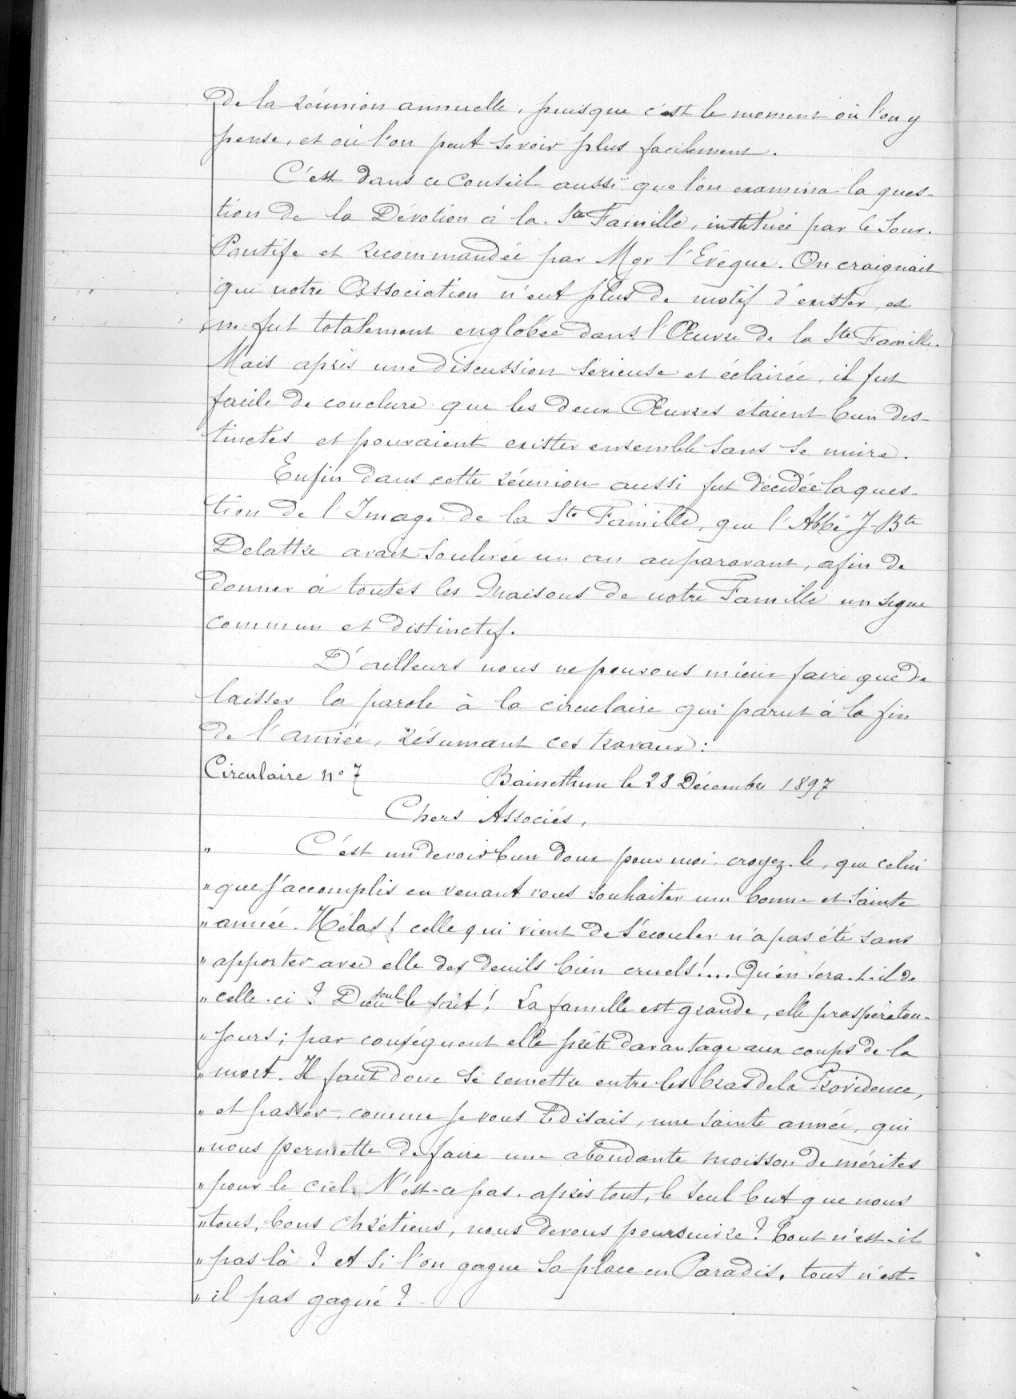 de la réunion annuelle, puisque c'est le moment où l'on y
pense, et où l'on peut se voir plus facilement.
C'est dans ce Conseil aussi que l'on examina la ques-
tion de la Dévotion à la Ste Famille, instituée par le Souv.
Pontife et recommandée par Mgr l'Evêque. On craignait
que notre Association n'eut plus de motif d'exister, et
ne fut totalement englobée dans l'Œuvre de la Ste Famille.
Mais après une discussion sérieuse et éclairée, il fut
facile de conclure que les deux Œuvres étaient bien dis-
tinctes et pouvaient exister ensemble sans se nuire.
Enfin dans cette réunion aussi fut décidée la ques-
tion de l'Image de la Ste Famille, que l'Abbé J-Bte
Delattre avait soulevée un an auparavant, afin de
donner à toutes les Maisons de notre Famille un signe
commun et distinctif.
D'ailleurs nous ne pouvons mieux faire que de
laisser la parole à la circulaire qui parut à la fin
de l'année, résumant ces travaux :
Circulaire No 7 Bainethun le 28 Décembre 1897
Chers Associés,
" C'est un devoir bien doux pour moi, croyez-le, que celui
" que j'accomplis en venant vous souhaiter une bonne et sainte
" année. Hélas ! celle qui vient de s'écouler n'a pas été sans
" apporter avec elle des deuils bien cruels !... Qu'en sera-t-il de
" celle-ci ? Dieu seul le sait ! La famille est grande, elle prospère tou-
" jours ; par conséquent elle prête davantage aux coups de la
" mort. Il faut donc se remettre entre les bras de la Providence,
" et passer, comme je vous le disais, une sainte année, qui
" nous permette de faire une abondante moisson de mérites
" pour le ciel. N'est-ce pas, après tout, le seul but que nous
" tous, bons chrétiens, nous devons poursuivre ? Tout n'est-il
" pas là ? et si l'on gagne sa place en Paradis, tout n'est-
" il pas gagné ?